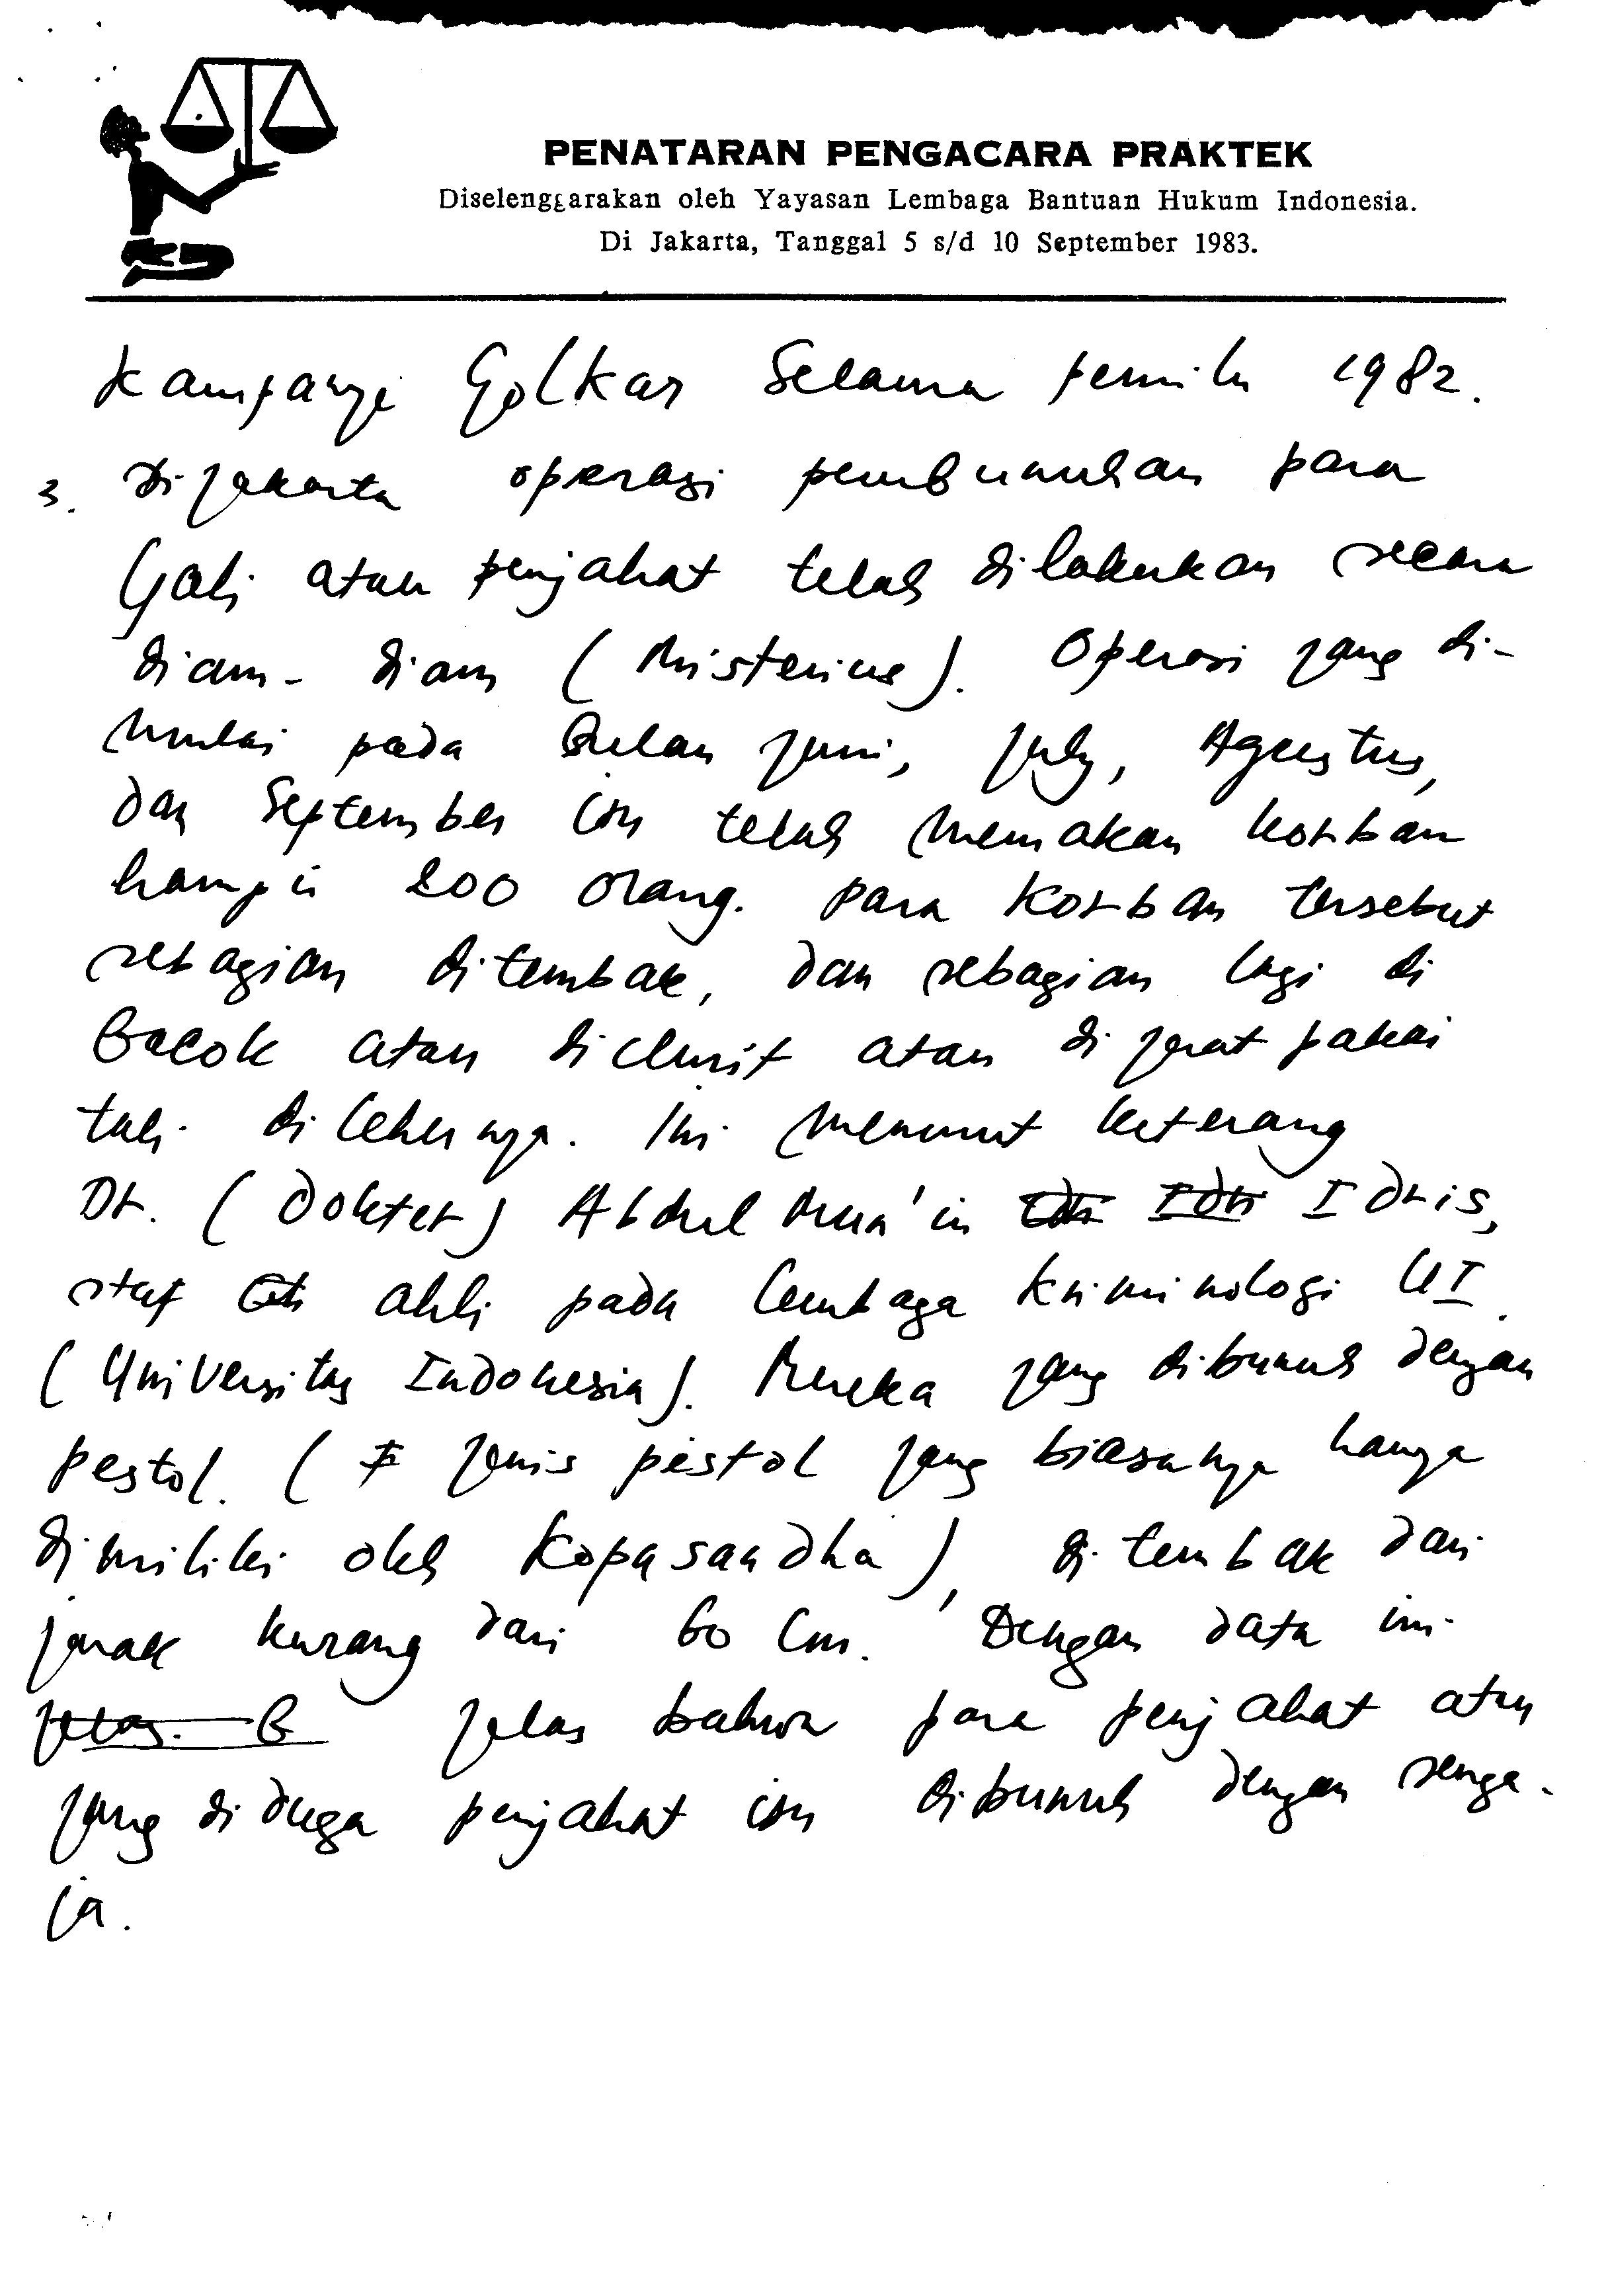 PENATARAN PENGACARA PRAKTEK
Diselenggarakan oleh Yayasan Lembaga Bantuan Hukum Indonesia.
Di Jakarta, Tanggal 5 s/d 10 September 1983.
Kampanye Golkar Selama pemilu 1982.
3. Di Jakarta operasi pembunuhan para
Gali atau penjahat telah dilakukan secara
diam-diam (Misterius). Operasi yang di-
mulai pada Bulan Juni, July, Agustus,
dan September ini telah memakan korban
hampir 200 orang. para korban tersebut
sebagian ditembak, dan sebagian lagi di
bacok atau diclurit atau di jerat pakai
tali di lehernya. Ini menurut keterang
Dr. (Dokter) Abdul Mun'in Idris,
staf ahli pada lembaga kriminologi UI.
(Universitas Indonesia). Mereka yang dibunuh dengan
pestol. (jenis pistol yang biasanya hanya
dimiliki oleh Kopasandha), di tembak dari
jarak kurang dari 60 cm. Dengan data ini
jelas bahwa para penjahat atau
yang diduga penjahat ini dibunuh dengan senga-
ja.